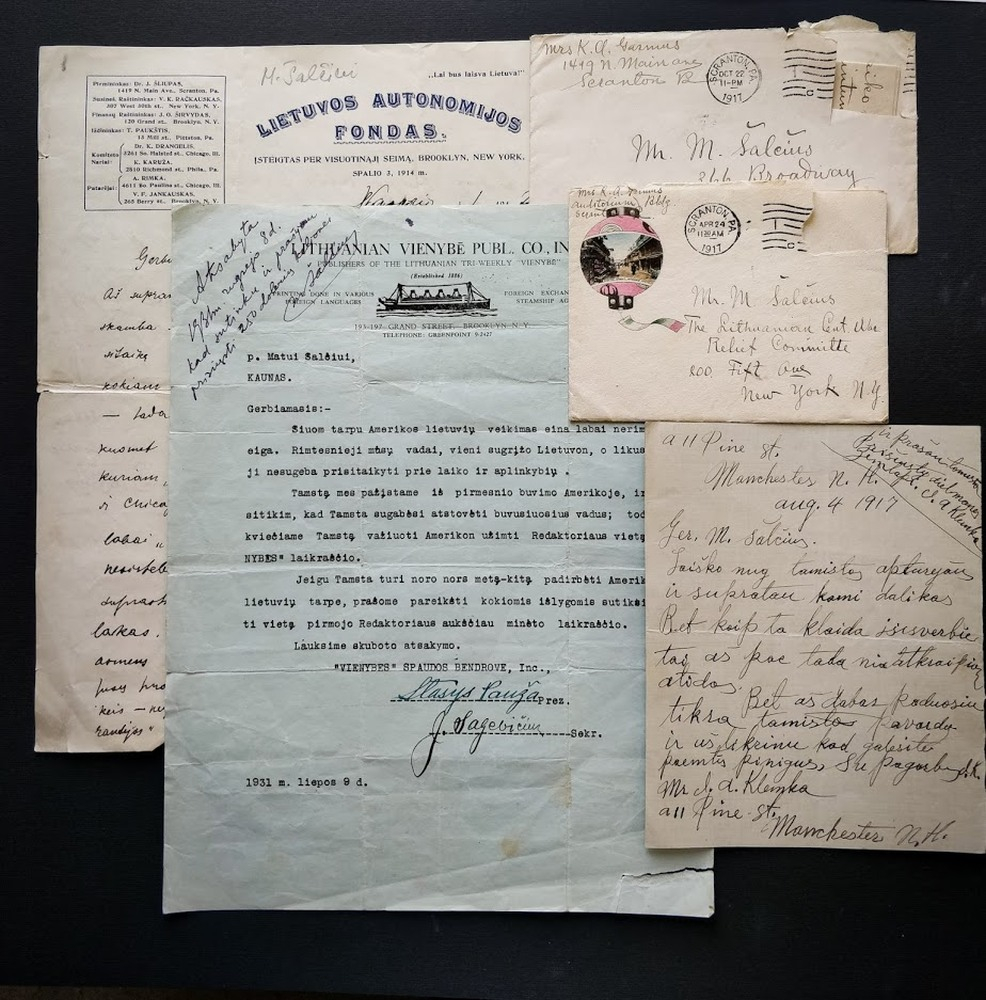 M. Šalčiui
„Lai bus laisva Lietuva!"
LIETUVOS AUTONOMIJOS
FONDAS.
ĮSTEIGTAS PER VISUOTINĄJĮ SEIMĄ, BROOKLYN, NEW YORK,
SPALIO 3, 1914 m.
Pirmininkas: Dr. J. ŠLIUPAS,
1419 N. Main Ave., Scranton, Pa.
Susineš Raštininkas: V. K. RAČKAUSKAS,
307 West 30th st., New York, N. Y.
Finansų Raštininkas: J. O. ŠIRVYDAS,
120 Grand st., Brooklyn, N. Y.
Iždininkas: T. PAUKŠTIS,
15 Mill st., Pittston, Pa.
Komiteto Nariai:
Dr. K. DRANGELIS,
3261 So. Halsted st., Chicago, Ill.
K. KARUŽA,
2810 Richmond st., Phila., Pa.
Patarėjai:
A. RIMKA,
4611 So. Paulina st., Chicago, Ill.
V. F. JANKAUSKAS,
265 Berry st., Brooklyn, N. Y.
Gerbi
Aš supras
skamba
kokiam
— tada
kuomet
kuriam,
iš Chicag
labai „
laikas.
Mrs K. A. Garmus
1419 N. Main ave
Scranton Pa
SCRANTON, PA.
OCT 22
11-PM
1917
Mr. M. Šalčius
366 Broadway
Mrs K. A. Garmus
Auditorium Bldg
SCRANTON, PA.
APR 24
1917
Mr. M. Šalčius
The Lithuanian Cent. War
Relief Committe
200 Fift ave
New York N.Y.
LITHUANIAN VIENYBĖ PUBL. CO., IN
PUBLISHERS OF THE LITHUANIAN TRI-WEEKLY "VIENYBĖ"
(Established 1886)
PRINTING DONE IN VARIOUS
FOREIGN LANGUAGES
FOREIGN EXCHAN
STEAMSHIP AG
193-197 GRAND STREET, BROOKLYN, N. Y.
TELEPHONE: GREENPOINT 9-2427
Atsakyta
1931m rugsėjo 8 d.
kad sutinku ir prašau
prisiųsti 250 dolerių kelionei
p. Matui Salčiui,
KAUNAS.
Gerbiamasis:-
Siuom tarpu Amerikos lietuvių veikimas eina labai nerim
eiga. Rimtesnieji mūsų vadai, vieni sugrįžo Lietuvon, o likus
ji nesugeba prisitaikyti prie laiko ir aplinkybių .
Tamstą mes pažįstame iš pirmesnio buvimo Amerikoje, ir
sitikim, kad Tamsta sugabėsi atstovėti buvusiuosius vadus; tod
kviečiame Tamstą važiuoti Amerikon užimti Redaktoriaus vietą
NYBES" laikraščio.
Jeigu Tamsta turi noro nors metą-kitą padirbėti Amerik
lietuvių tarpe, prašome pareikšti kokiomis išlygomis sutiksi
ti vietą pirmojo Redaktoriaus aukščiau minėto laikraščio.
Lauksime skuboto atsakymo.
"VIENYBES" SPAUDOS BENDROVE, Inc.,
Stasys Pauža Prez.
J. Sagevičius Sekr.
1931 m. liepos 9 d.
a 11 Pine st.
Manchester N. H.
aug. 4 1917
ir prašau tamistos
prisiųsti dielmones
J. A Klemka
Ger. M. Šalčius.
Laiško nug tamistos apturėjau
ir supratau kami dalikas
Bet kaip ta klaida įsisverbie
taj as pac tada niatkraipiau
atidos.
Bet aš dabar paduosiu
tikra tamistos pavarde
ir užtikrinu kad galėsite
paimti pinigus, Su pagarba J.K.
Mr J. A. Klemka
a11 Pine st.
Manchester N. H.